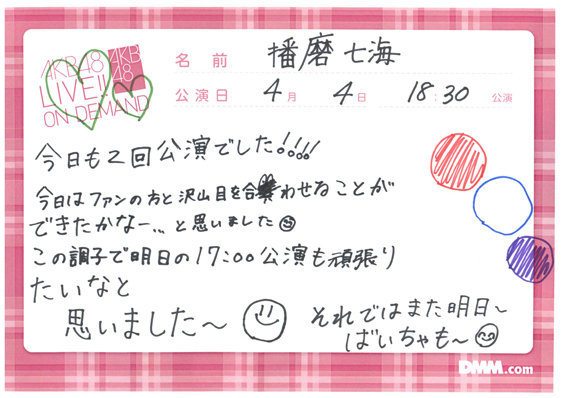 AKB48
LIVE!!
ON DEMAND
AKB
48
名前 播磨七海
公演日 4月 4日 18:30 公演
今日も2回公演でした!!!!
今日はファンの方と沢山目を合わせることが
できたかなー... と思いました
この調子で明日の17:00公演も頑張り
たいなと
思いました〜
それではまた明日〜
ばいちゃも〜
DMM.com